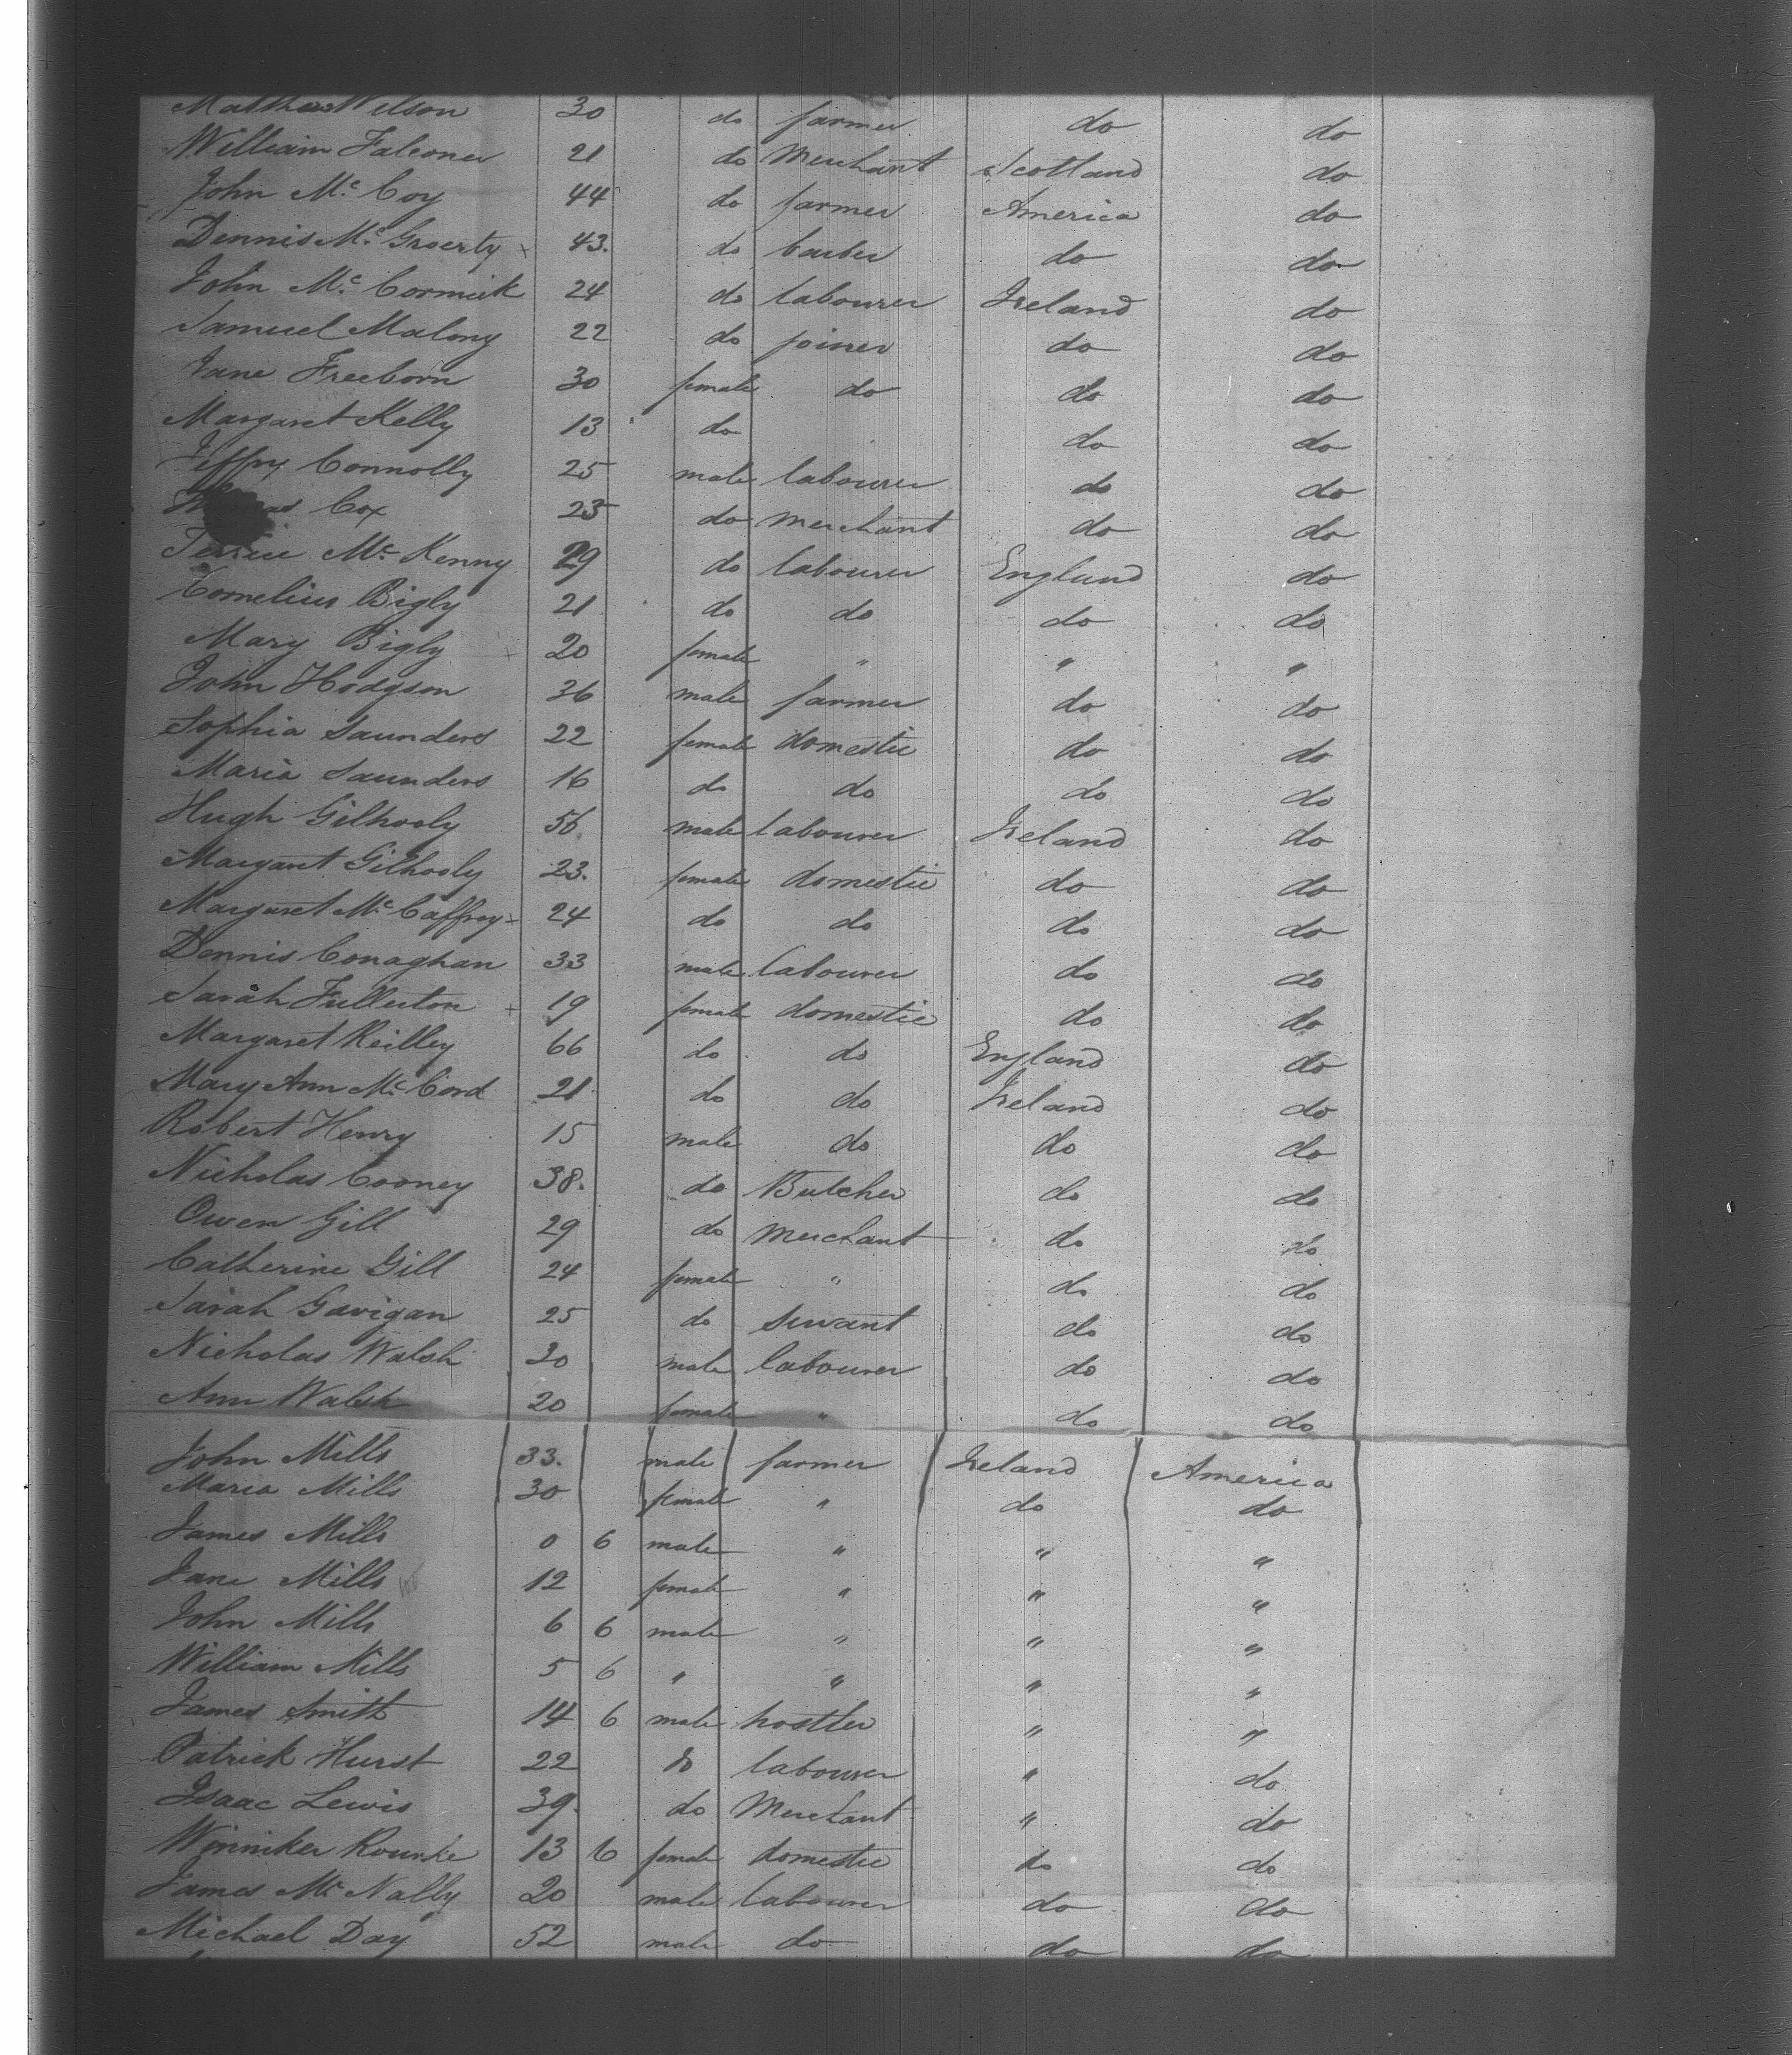 Matthew Wilson 30 do farmer do do
William Falconer 21 do Merchant Scotland do
John Mc Coy 44 do farmer America do
Dennis Mc Groerty 43. do barber do do
John Mc Cormick 24 do labourer Ireland do
Samuel Malony 22 do joiner do do
Jane Freeborn 30 female do do do
Margaret Kelly 13 do do do
Jeffry Connolly 25 male labourer do do
Cox 23 do merchant do do
Mc Kenny 29 do labourer England do
Cornelius Bigly 21 do do do do
Mary Bigly 20 female " " "
John Hodgson 36 male farmer do do
Sophia Saunders 22 female domestic do do
Maria Saunders 16 do do do do
Hugh Gilhooly 56 male labourer Ireland do
Margaret Gilhooly 23. female domestic do do
Margaret Mc Caffrey 24 do do do do
Dennis Conaghan 33 male labourer do do
Sarah Fullerton 19 female domestic do do
Margaret Reilley 66 do do England do
Mary Ann Mc Cord 21 do do Ireland do
Robert Henry 15 male do do do
Nicholas Cooney 38. do Butcher do do
Owen Gill 29 do Merchant do do
Catherine Gill 24 female " do do
Sarah Gavigan 25 do servant do do
Nicholas Walsh 30 male labourer do do
Ann Walsh 20 female " do do
John Mills 33. male farmer Ireland America
Maria Mills 30 female " do do
James Mills 0 6 male " " "
Jane Mills 12 female " " "
John Mills 6 6 male " " "
William Mills 5 6 " " " "
James Smith 14 6 male hostler " "
Patrick Hurst 22 do labourer " do
Isaac Lewis 39. do Merchant " do
Winniker Rourke 13 6 female domestic do do
James Mc Nally 20 male labourer do do
Michael Day 52 male do do do